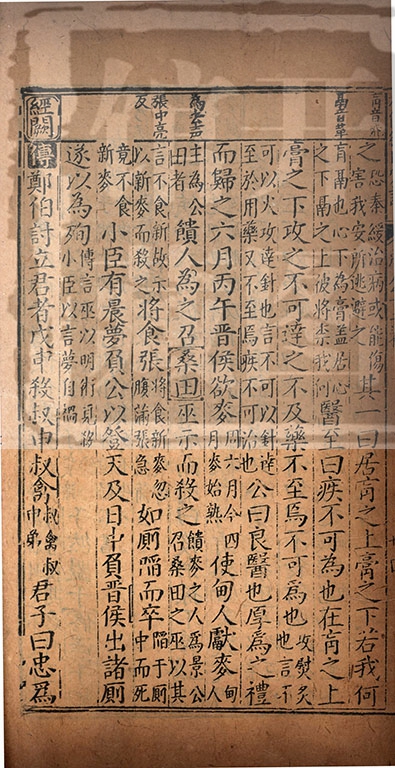 肓音荒
之恐秦緩治病或能傷害我安所逃避之其一曰居肓之上膏之下若我何
鬲音革
肓鬲也心下為膏蓋居心之下鬲之上彼將柰我何醫至曰疾不可為也在肓之上
膏之下攻之不可達之不及藥不至焉不可為也攻熨灸也言不
可以火攻達針也言不可以針達至於用藥又不至焉疾不可治也公曰良醫也厚為之禮
而歸之六月丙午晉侯欲麥周六月今四月麥始熟使甸人獻麥甸人
為去聲
主為公田者饋人為之召桑田巫示而殺之饋麥之人為景公召桑田之巫以其
張中亮反
言不食新故示以新麥而殺之將食張將食新麥忽腹滿張急如廁陷而卒陷于廁中而死
竟不食新麥小臣有晨夢負公以登天及日中負晉侯出諸廁
遂以為殉傳言巫以明術見殺小臣以言夢自禍
經闕
傳鄭伯討立君者戊申殺叔申叔禽叔禽叔申弟君子曰忠為